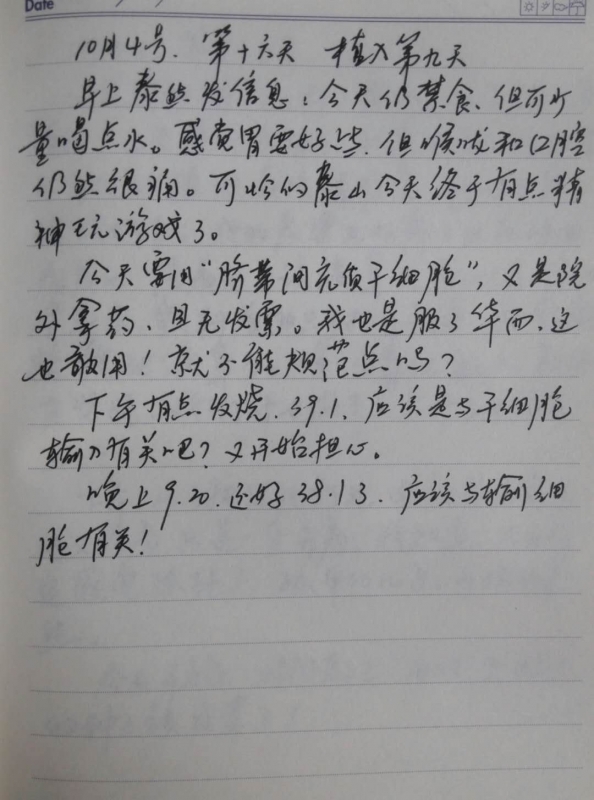 Date
10月4号. 第十六天 植入第九天
早上泰然发信息:今天仍禁食、但可少
量喝点水。感觉胃要好些.但喉咙和口腔
仍然很痛。可怜的泰山今天终于有点精
神玩游戏了。
今天要用“脐带间充质干细胞”,又是院
外拿药、且无发票。我也是服了华西.这
也敢用!就不能规范点吗?
下午有点发烧.39.1.应该是与干细胞
输入有关吧?又开始担心。
晚上9.20.还好38.13.应该与输细
胞有关!